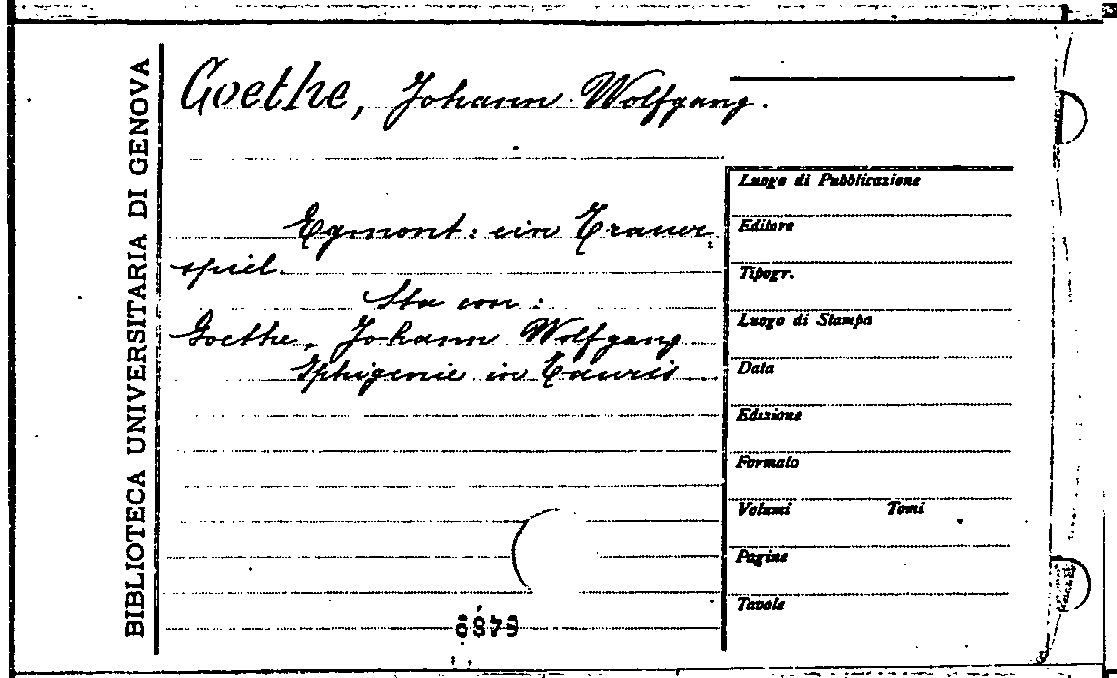 BIBLIOTECA UNIVERSITARIA DI GENOVA
Goethe, Johann Wolfgang.
Egmont: ein Trauer
spiel.
Sta con:
Goethe, Johann Wolfgang
Iphigenie in Tauris
Luogo di Pubblicazione
Editore
Tipogr.
Luogo di Stampa
Data
Edizione
Formato
Volumi Tomi
Pagine
Tavole